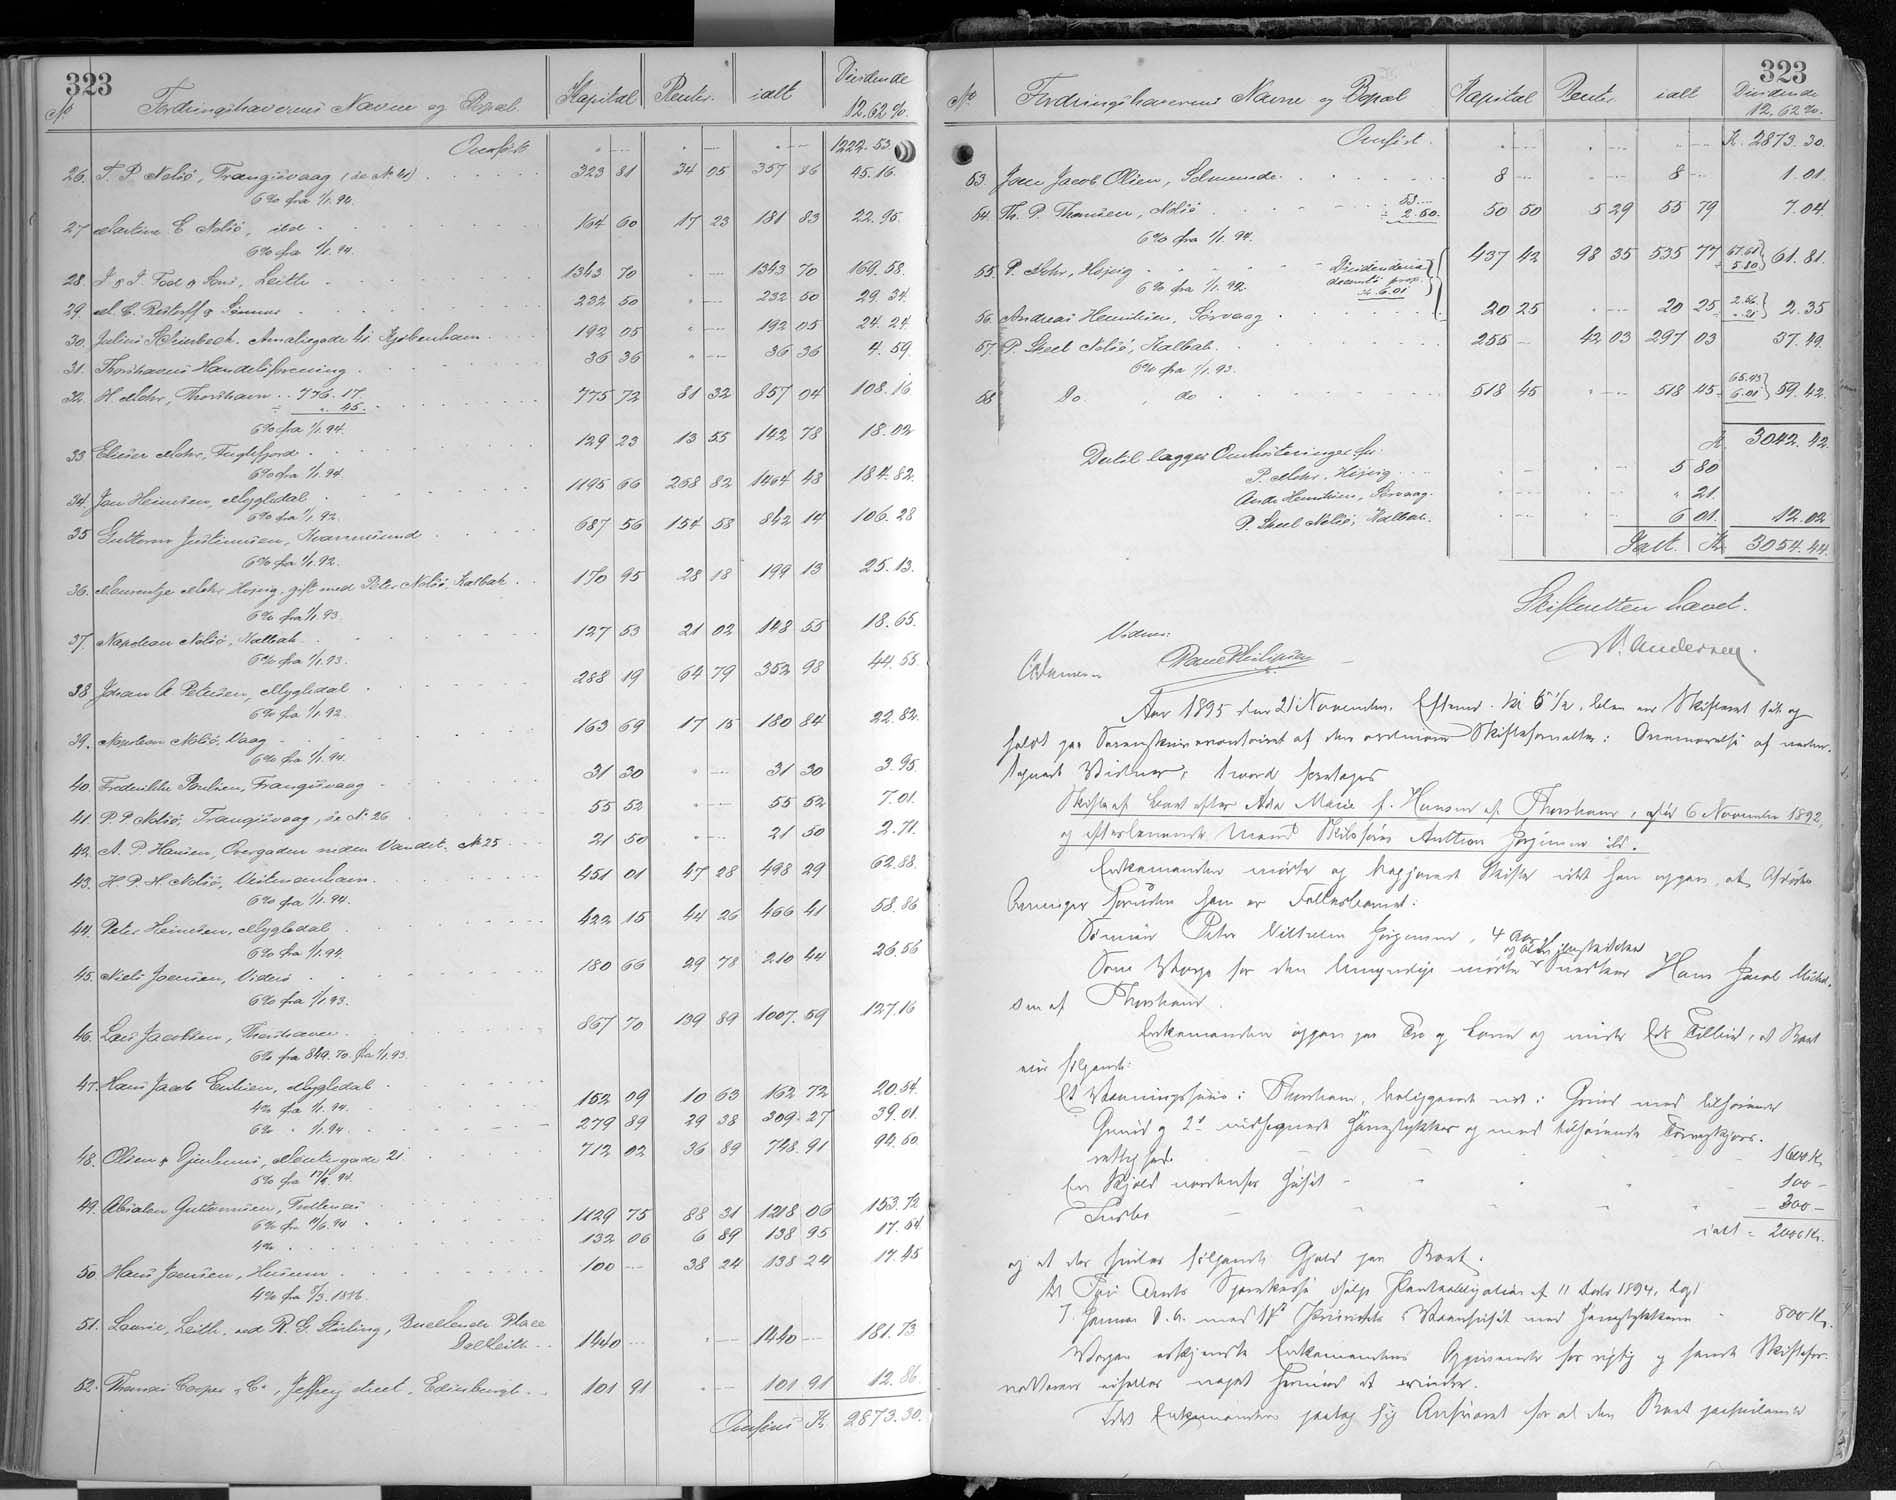 323
No Fordringshaverens Navne og Bopæl. Kapital Renter. ialt Dividende 12.62%.
Overført 1222.53.
26. T. P. Nolsö, Trangisvaag (se No 41) 323 81 34 05 357 86 45.16.
6% fra 1/1.94.
27 Martine E Nolsö, ibd 164 60 17 23 181 83 22.95.
6% fra 1/1.94.
28. J & J. Tod & Sons, Leith 1343 70 " 1343 70 169.58.
29. M. C. Restorff & Sönner 232 50 " 232 50 29.34.
30. Julius Schierbeck. Amaliegade 41. Kjöbenhavn 192 05 " 192 05 24.24.
31. Thorshavns Handelsforening 36 36 " 36 36 4.59.
32. H. Mohr, Thorshavn 776.17. 775 72 81 32 857 04 108.16
÷ ". 45.
6% fra 1/1.94.
33 Elieser Mohr, Fuglefjord 129 23 13 55 142 78 18.02
6% fra 1/1.94.
34. Jon Heinesen, Mygledal 1195 66 268 82 1464 48 184.82.
6% fra 1/1.92.
35 Guttorm Justinussen, Kvannesund 687 56 154 58 842 14 106.28
6% fra 1/1.92.
36. Maurentje Mohr Hojvig, gift med Peter Nolsö, Kalbak 170 95 28 18 199 13 25.13.
6% fra 1/1.93.
37. Napolean Nolsö, Kalbak 127 53 21 02 148 55 18.65.
6% fra 1/1.93.
38 Johan A. Petersen, Mygledal 288 19 64 79 352 98 44.55.
6% fra 1/1.92.
39. Napoleon Nolsö, Vaag 163 69 17 15 180 84 22.82.
6% fra 1/1.94.
40. Frederikke Poulsen, Trangisvaag 31 30 " 31 30 3.95.
41. P. P. Nolsö, Trangisvaag, se No 26 55 52 " 55 52 7.01.
42. A. P. Hansen, Overgaden neden Vandet. No 25 21 50 " 21 50 2.71.
43. H. P. H. Nolsö, Vestmanhavn. 451 01 47 28 498 29 62.88.
6% fra 1/1.94.
44. Peter Heinesen, Mygledal 422 15 44 26 466 41 58.86
6% fra 1/1.94.
45. Niels Joensen, Viderö 180 66 29 78 210 44 26.56
6% fra 1/1.93.
46. Lars Jacobsen, Thorshavn. 867 70 139 89 1007.59 127.16
6% fra 849.70. fra 1/1.93.
47. Hans Jacob Eliesen, Mygledal
4% fra 1/1.94. 152 09 10 63 162 72 20.54.
6% " 1/1.94. 279 89 29 38 309.27 39.01.
48. Olsen & 712 02 36 89 748.91 94.60
5% fra
49. Absalon Guttormsen, 1129 75 88 31 1218 06 153.72
4% 132 06 6 89 138 95 17.54
50. Hans Joensen, Husum 100 38 24 138 24 17.45
4% fra 5/3.1886.
51. Laurie, Leith, ved R. G. Stirling, Buccleuch Place
Dalkeith 1440 " 1440 181.73
52. Thomas Cooper & Co, Jeffrey street, Edinburgh 101 91 " 101.91 12.86.
Overføres Kr 2873.30.
323
No Fordringshaverens Navne og Bopæl Kapital Renter ialt Dividende 12,62%.
Overført. Kr. 2873.30.
53. Joen Jacob Olsen, Selmunde 8 8 1.01.
54. Th. P. Thomsen, Nolsö 53.... 50 50 5 29 55 79 7.04.
÷ 2.50.
6% fra 1/1.94.
55. P. Mohr, Hojvig 437 42 98 35 535 77 67.61 ÷ 5.80 61.81.
6% fra 1/1.92.
56. Andreas Heinesen, Sörvaag 20 25 20 25 2.56 ". 21 2.35
57. P. Skeel Nolsö, Kalbak. 255 42 03 297 03 37.49.
6% fra 1/1.93.
58 Do do 518 45 " 518 45 65.43 6.01 59.42.
Kr 3042.42.
Dertil lægges Omkostninger for:
P. Mohr, Hojvig 5 80
Andr. Heinesen, Sörvaag. " 21.
P. Skeel Nolsö, Kalbak. 6 01. 12.02
Ialt. Kr 3054.44.
Skifteretten hævet.
N. Andersen.
Vidner:
Poul Philipsen
Aar 1895 den 21 November. Efterm. Kl 5 1/2, blev en Skifteret sat og
holdt paa Sorenskriverkontoret af den ordinære Skifteforvalter i Overværelse af neden-
tegnede Vidner, hvorda foretoges
Skifte af Boet efter Ada Marie f. Hansen af Thorshavn, död 6 November 1892,
og efterlevende Mand Anthon Jörgensen ibd.
Enkemanden mødte og begjærede Skifte idet han opgav, at Afdödes
Arvinger foruden ham er Fællesbarnet:
Sönnen Peter Vilhelm Jörgensen, 4 Aar
Som Værge for den Umyndige mødte Snedker Hans Jacob Michel-
sen af Thorshavn.
Enkemanden opgav paa Tro og Love og under Eds Tilbud, at Boet
eier følgende:
Et Vaaningshuus i Thorshavn, beliggende med tilhørende
Grund og 2de indhegnede og med tilhørende Törveskjærs-
rettighed 1600 Kr.
En 100 –
300 –
ialt = 2000 Kr.
og at der hviler følgende Gjæld paa Boet.
Til Færö Amts Sparekasse ifølge Panteobligation af 11 1894, tgl.
7. Januar d. A. med 1st Prioritet i Vaanhuset med 800 Kr.
Værgen erkjendte Enkemandens Opgivende for rigtig og havde Skiftefor-
valteren eiheller noget herimod at erindre.
Idet Enkemanden paatog sig Ansvaret for al den Boet paahvilende